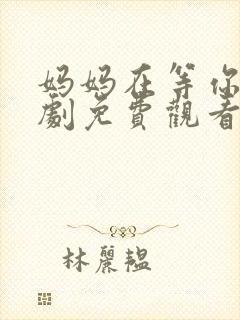 妈妈在等你
劇免費觀看
林麗韞